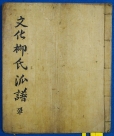 文化柳氏派譜